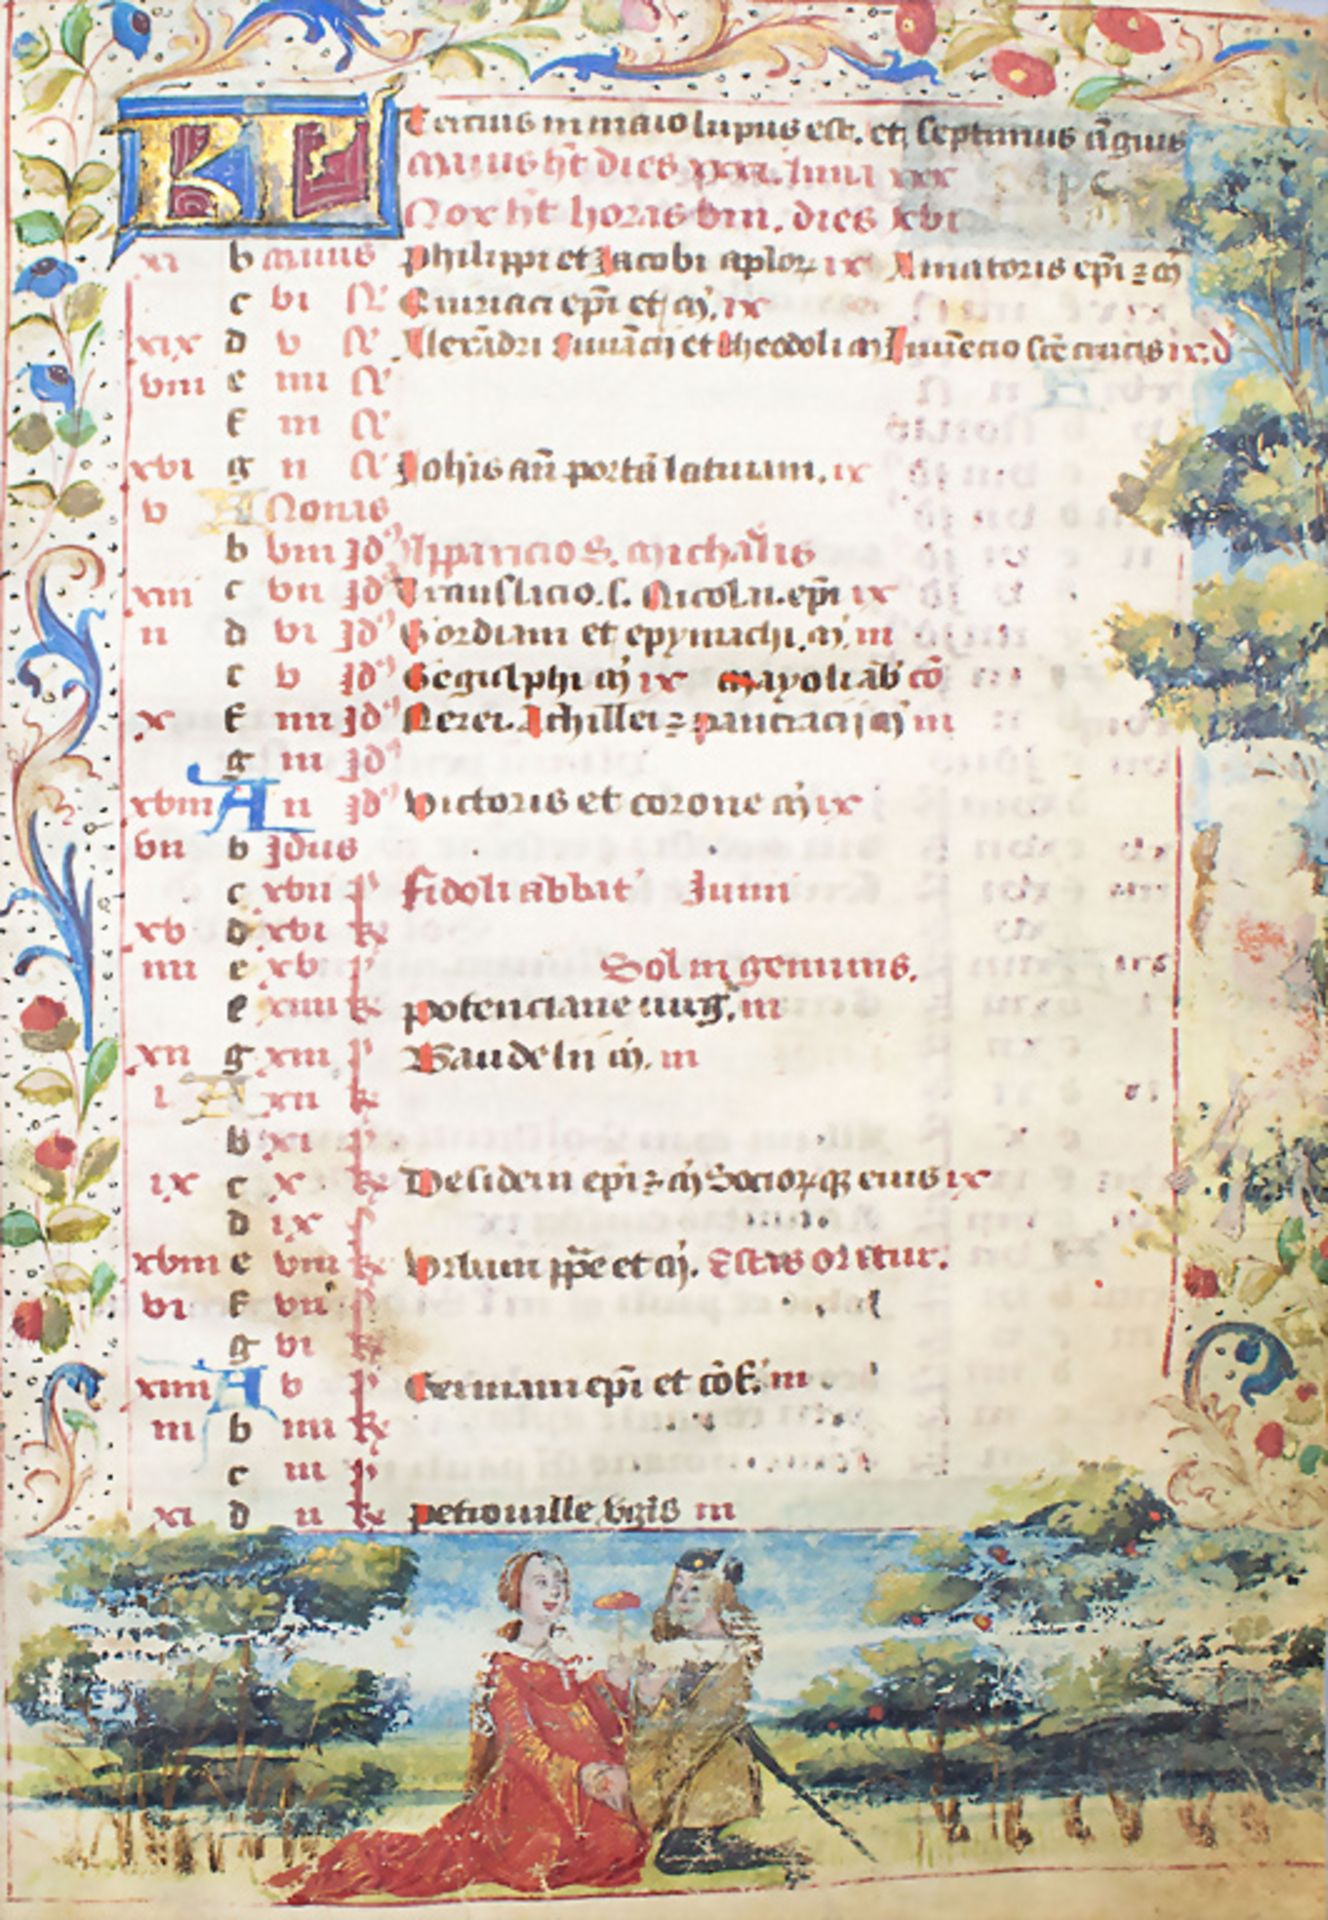 KL Tercius in maio lupus est. et septimus āguis
Maius ht dies xxxi. luna xxx
Nox ht horas viii. dies xvi
xi b Maius philippi et Jacobi aplor ix Amatoris epi z m
c vi N Quiriaci epi et m. ix
xix d v N Alexadri euuācij et theodoli m Inuēcio scē crucis ix. d
viii e iiii N
f iii N
xvi g ii N Johis añ portā latinam. ix
v A Nonas
b viii Jd Apparicio S. Michaelis
xiii c vii Jd Translacio. s. Nicolai. epi ix
ii d vi Jd Gordiani et epymachi. m. iii
e v Jd Gegulphi m ix Mayoli ab cō
x f iiii Jd Nerei. Achillei z pancracij m iii
g iii Jd
xviii A ii Jd victoris et corone m ix
vii b Jdus
c xvii k fidoli abbat' Junii
xv d xvi k
iiii e xv Sol in geminis.
f xiiii k potenciane uirg. iii
xii g xiii k Baudelii m. iii
i A xii k
b xi
ix c x k Desiderii epi z m Socior q eius ix
d ix
xviii e viii k vrbani ppe et m. Estas oritur.
vi f vii
g vi k
xiiii A v k Germani epi et cōf. iii
iii b iiii k
c iii k
xi d ii k petronille virgis iii